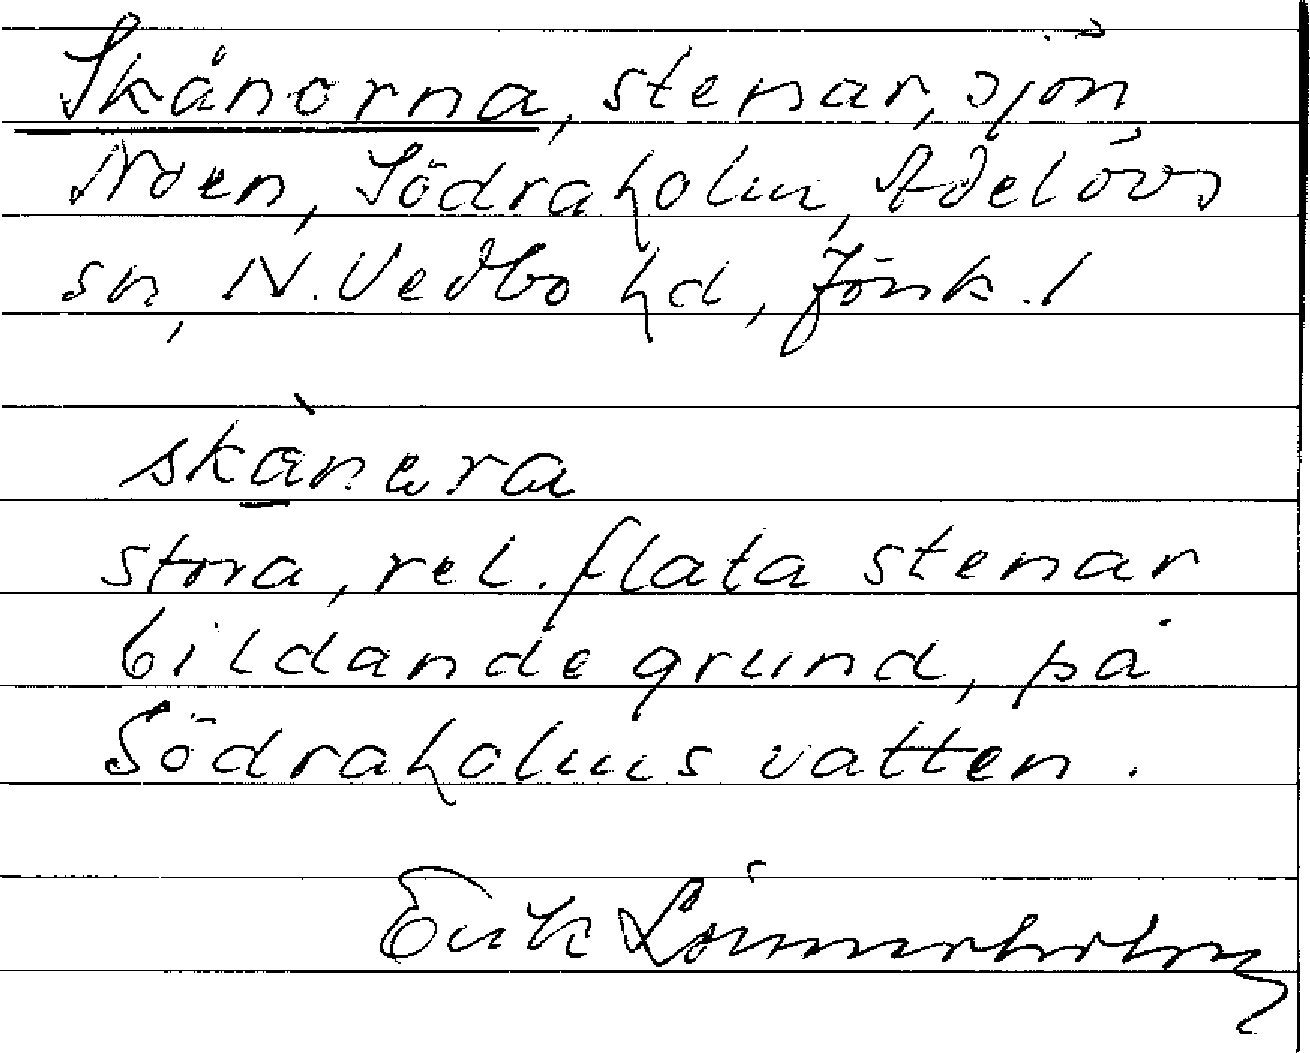 Skånorna, stenar, sjön
Noen, Södraholm, Adelövs
sn, N. Vedbo hd, Jönk. l
skànera
stora, rel. flata stenar
bildande grund, på
Södraholms vatten.
Erik Lönnerholm